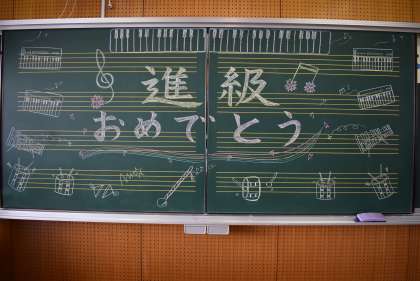 進級
おめでとう